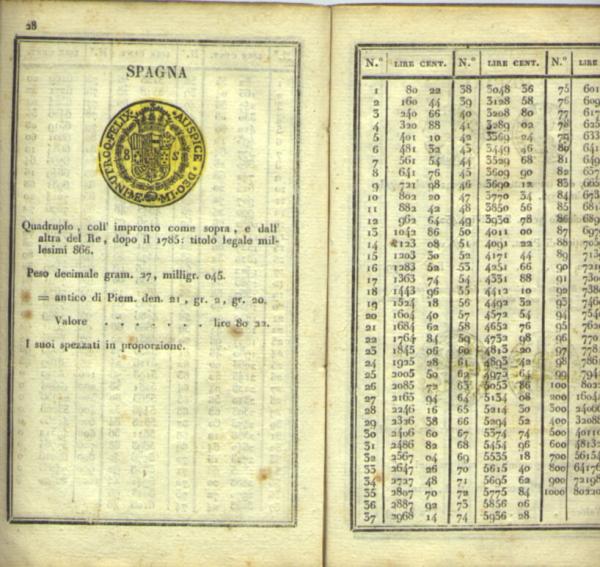 28
SPAGNA
IN·UTROQ·FELIX· AUSPICE·DEO·
8 S
Quadruplo, coll' impronto come sopra, e dall'
altra del Re, dopo il 1785: titolo legale mil-
lesimi 866.
Peso decimale gram. 27, milligr. 045.
= antico di Piem. den. 21, gr. 2, gr. 20.
Valore . . . . . . . lire 80 22.
I suoi spezzati in proporzione.
N.° LIRE CENT. N.° LIRE CENT. N.° LIRE
1 80 22 38 3048 36 75 601
2 160 44 39 3128 58 76 609
3 240 66 40 3208 80 77 617
4 320 88 41 3289 02 78 625
5 401 10 42 3369 24 79 633
6 481 32 43 3449 46 80 641
7 561 54 44 3529 68 81 649
8 641 76 45 3609 90 82 657
9 721 98 46 3690 12 83 665
10 802 20 47 3770 34 84 673
11 882 42 48 3850 56 85 681
12 962 64 49 3930 78 86 689
13 1042 86 50 4011 00 87 697
14 1123 08 51 4091 22 88 705
15 1203 30 52 4171 44 89 713
16 1283 52 53 4251 66 90 7219
17 1363 74 54 4331 88 91 730
18 1443 96 55 4412 10 92 738
19 1524 18 56 4492 32 93 746
20 1604 40 57 4572 54 94 754
21 1684 62 58 4652 76 95 762
22 1764 84 59 4732 98 96 770
23 1845 06 60 4813 20 97 778
24 1925 28 61 4893 42 98 786
25 2005 50 62 4973 64 99 794
26 2085 72 63 5053 86 100 802
27 2165 94 64 5134 08 200 1604
28 2246 16 65 5214 30 300 2406
29 2326 38 66 5294 52 400 3208
30 2406 60 67 5374 74 500 4011
31 2486 82 68 5454 96 600 4813
32 2567 04 69 5535 18 700 5615
33 2647 26 70 5615 40 800 6417
34 2727 48 71 5695 62 900 7219
35 2807 70 72 5775 84 1000 8022
36 2887 92 73 5856 06
37 2968 14 74 5936 28